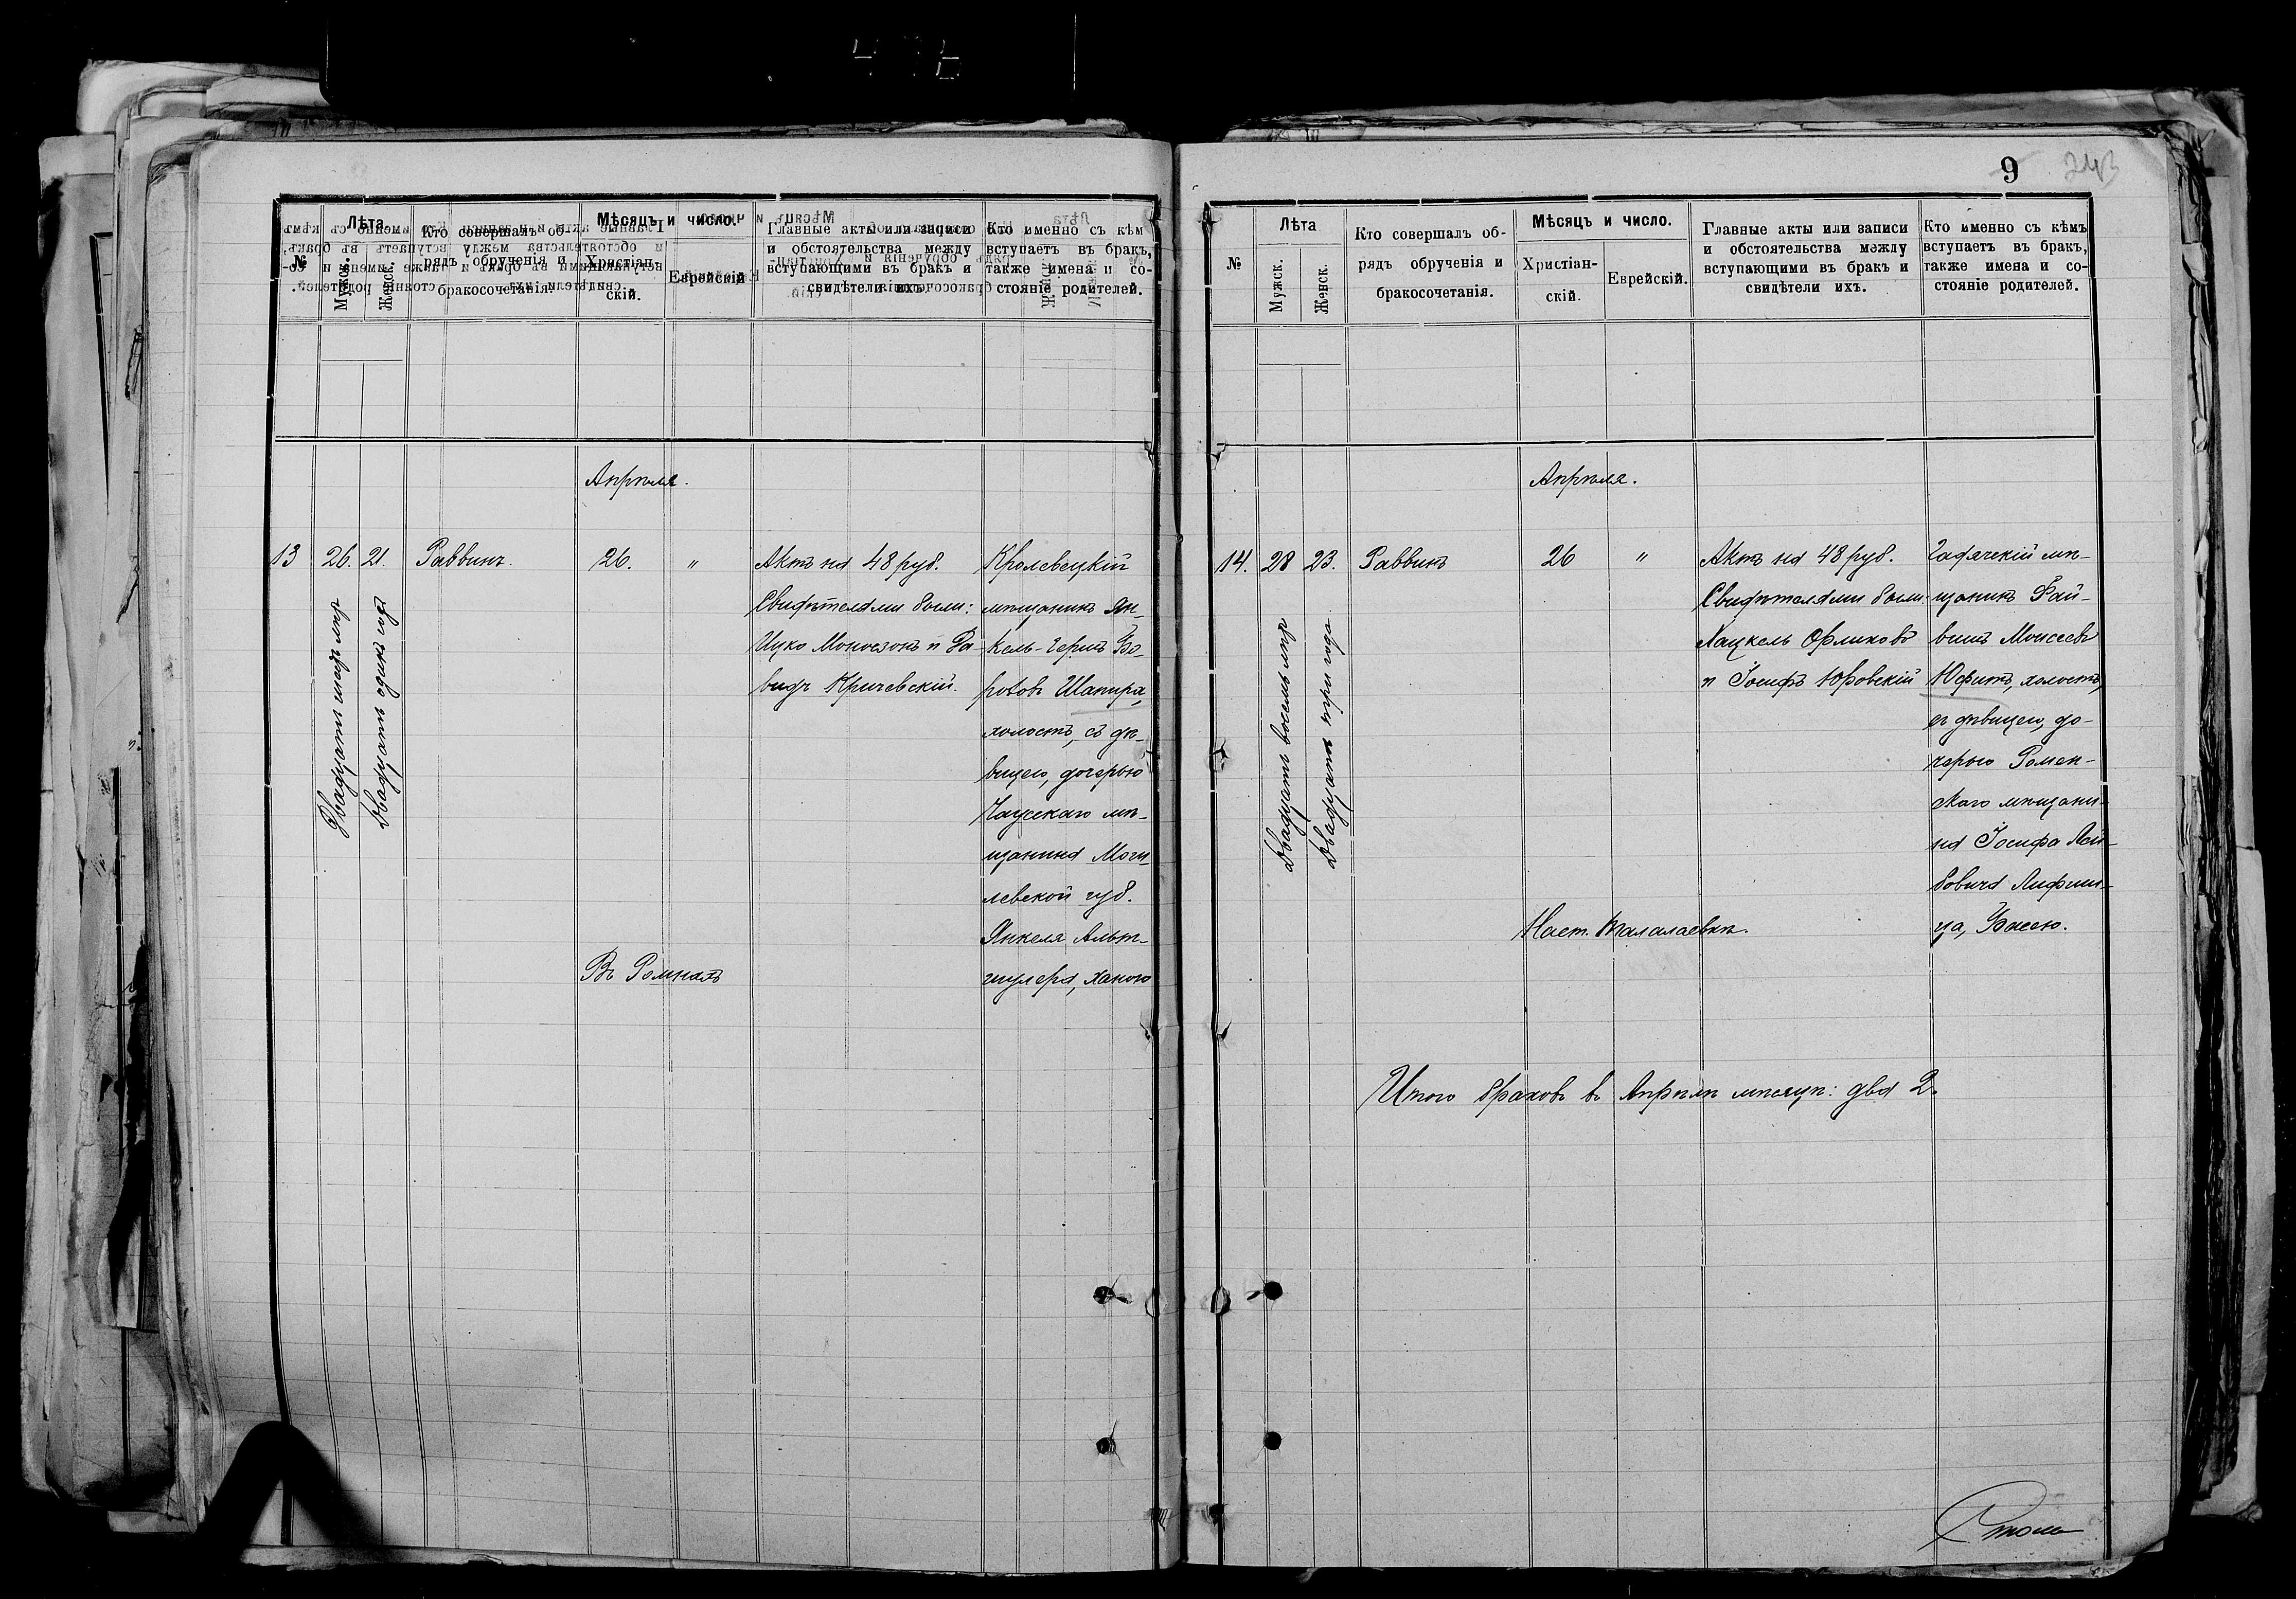 №
Лѣта
Мужск.
Женск.
Кто совершалъ об-
рядъ обрученія и
бракосочетанія.
Мѣсяцъ и число.
Христіан-
скій.
Еврейскій
Главные акты или записи
и обстоятельства между
вступающими въ бракъ и
свидѣтели ихъ.
Кто именно съ кѣм
вступаетъ въ бракъ,
также имена и со-
стояніе родителей.
Апрѣля.
13
26.
Двадцать шесть лѣтъ
21.
Двадцать одинъ годъ
Раввинъ.
26.
"
Въ Ромнахъ
Актъ на 48 руб.
Свидѣтелями были:
Ицко Моносзонъ и Да-
видъ Кричевскій.
Кролевецкій
мѣщанинъ Ян-
кель-Герцъ Бо-
ровъ Шапира,
холостъ, съ дѣ-
вицею, дочерью
Чаусскаго мѣ-
щанина Моги-
левской губ.
Янкеля Альт-
шулера, Ханою
9
243
№
Лѣта
Мужск.
Женск.
Кто совершалъ об-
рядъ обрученія и
бракосочетанія.
Мѣсяцъ и число.
Христіан-
скій.
Еврейскій.
Главные акты или записи
и обстоятельства между
вступающими въ бракъ и
свидѣтели ихъ.
Кто именно съ кѣмъ
вступаетъ въ бракъ,
также имена и со-
стояніе родителей.
Апрѣля.
14.
28
Двадцать восемь лѣтъ
23.
Двадцать три года
Раввинъ
26
"
Наст. Талалаевкѣ.
Актъ на 48 руб.
Свидѣтелями были:
Хацкель Орликовъ
и Іосифъ Юровскій
Гадячскій мѣ-
щанинъ Фай-
вишъ Моисеевъ
Юфитъ, холостъ,
съ дѣвицею, до-
черью Ромен-
скаго мѣщани-
на Іосифа Лей-
бовича Лифши-
ца, Басею.
Итого браковъ въ Апрѣлѣ мѣсяцѣ: два 2.